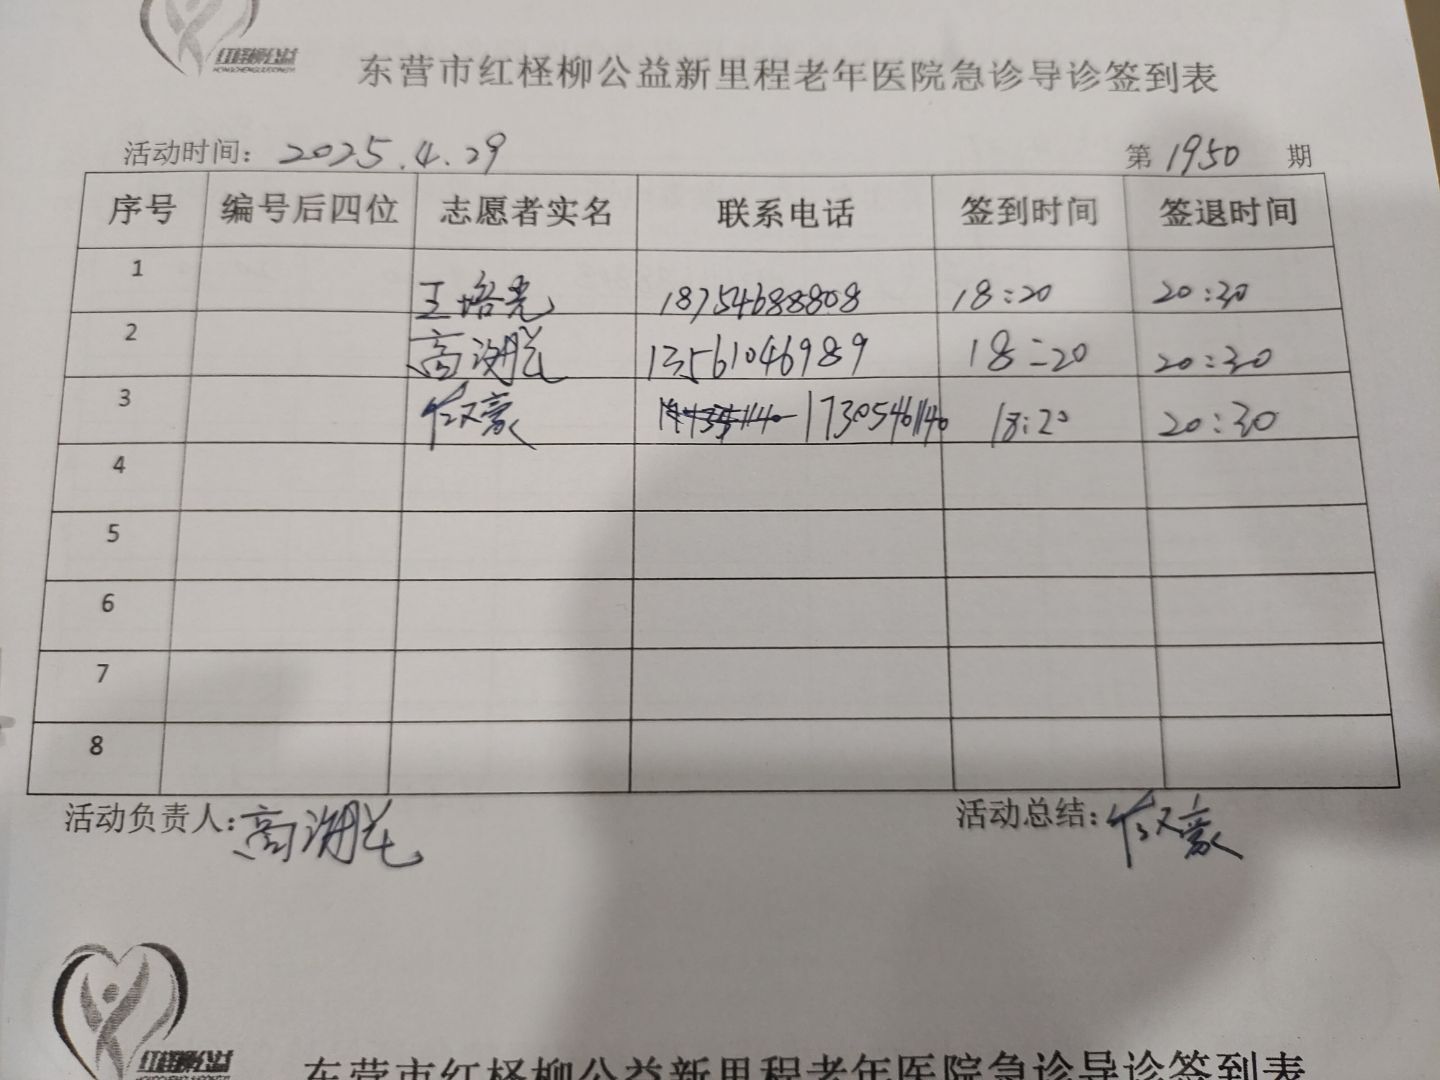 红柽柳公益
东营市红柽柳公益新里程老年医院急诊导诊签到表
活动时间： 2025.4.29 第 1950 期
序号 编号后四位 志愿者实名 联系电话 签到时间 签退时间
1 王培尧 18754688808 18:20 20:30
2 高 13561046989 18:20 20:30
3 豪 17305461140 18:20 20:30
4
5
6
7
8
活动负责人： 高 活动总结： 豪
红柽柳公益
东营市红柽柳公益新里程老年医院急诊导诊签到表